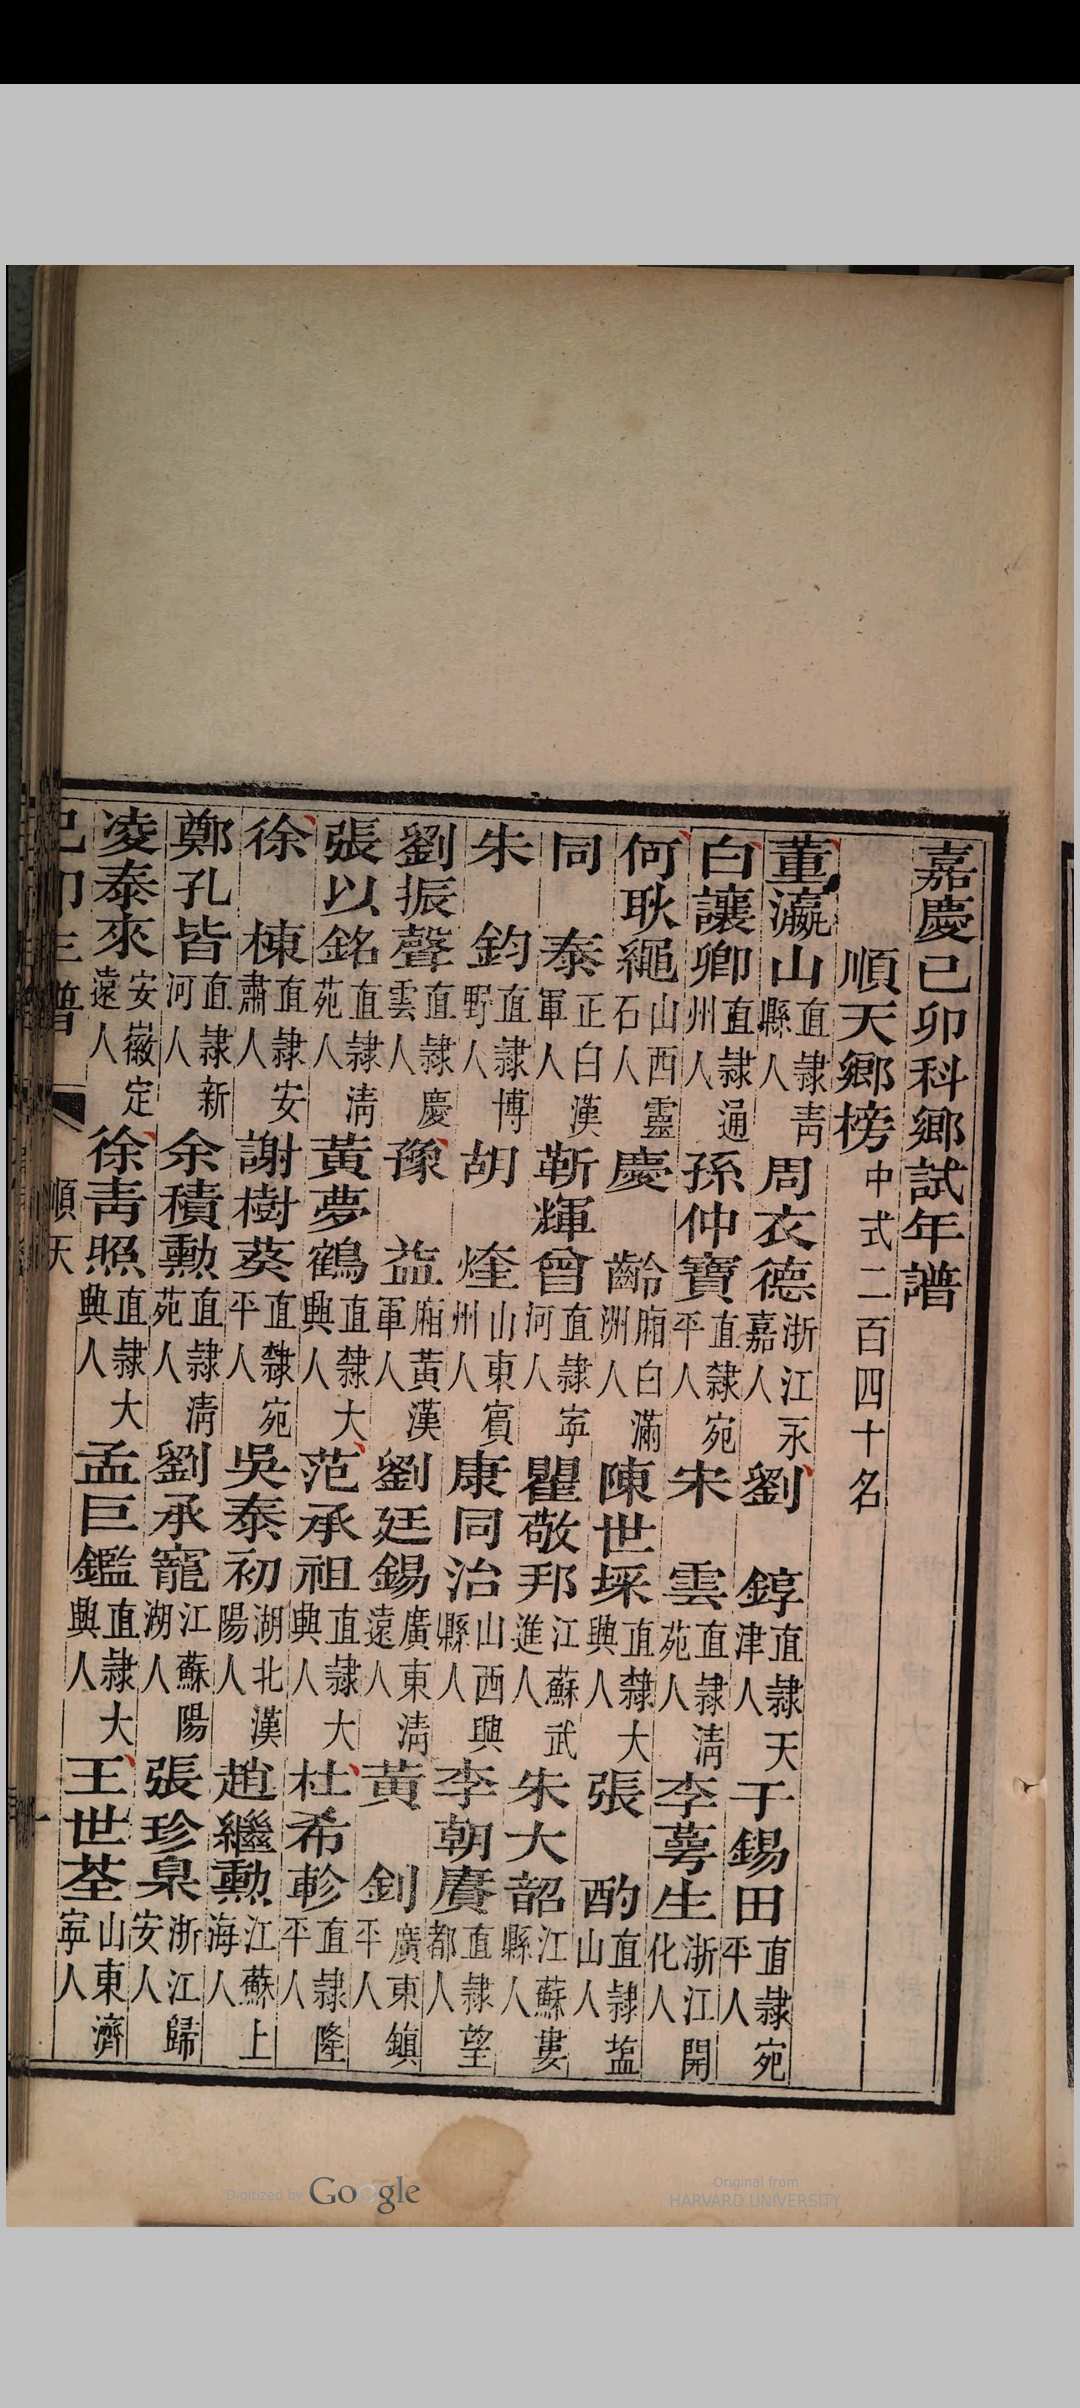 嘉慶己卯科鄉試年譜
順天鄉榜中式二百四十名
董瀛山直隸青縣人 周衣德浙江永嘉人 劉錞直隸天津人 于錫田直隸宛平人
白讓卿直隸通州人 孫仲寶直隸宛平人 宋雲直隸清苑人 李蕚生浙江開化人
何耿繩山西靈石人 慶齡廂白滿洲人 陳世埰直隸大興人 張酌直隸盐山人
同泰正白漢軍人 靳輝曾直隸寧河人 瞿敬邦江蘇武進人 朱大韶江蘇婁縣人
朱鈞直隸博野人 胡煃山東賓州人 康同治山西興縣人 李朝賡直隸望都人
劉振聲直隸慶雲人 豫益廂黃漢軍人 劉廷錫廣東清遠人 黃釗廣東鎮平人
張以銘直隸清苑人 黃夢鶴直隸大興人 范承祖直隸大興人 杜希軫直隸隆平人
徐棟直隸安肅人 謝樹葵直隸宛平人 吳泰初湖北漢陽人 趙繼勳江蘇上海人
鄭孔皆直隸新河人 余積勳直隸清苑人 劉承寵江蘇陽湖人 張珍臬浙江歸安人
凌泰來安徽定遠人 徐青照直隸大興人 孟巨鑑直隸大興人 王世荃山東濟寧人
順天
Digitized by Google
Original from
HARVARD UNIVERSITY